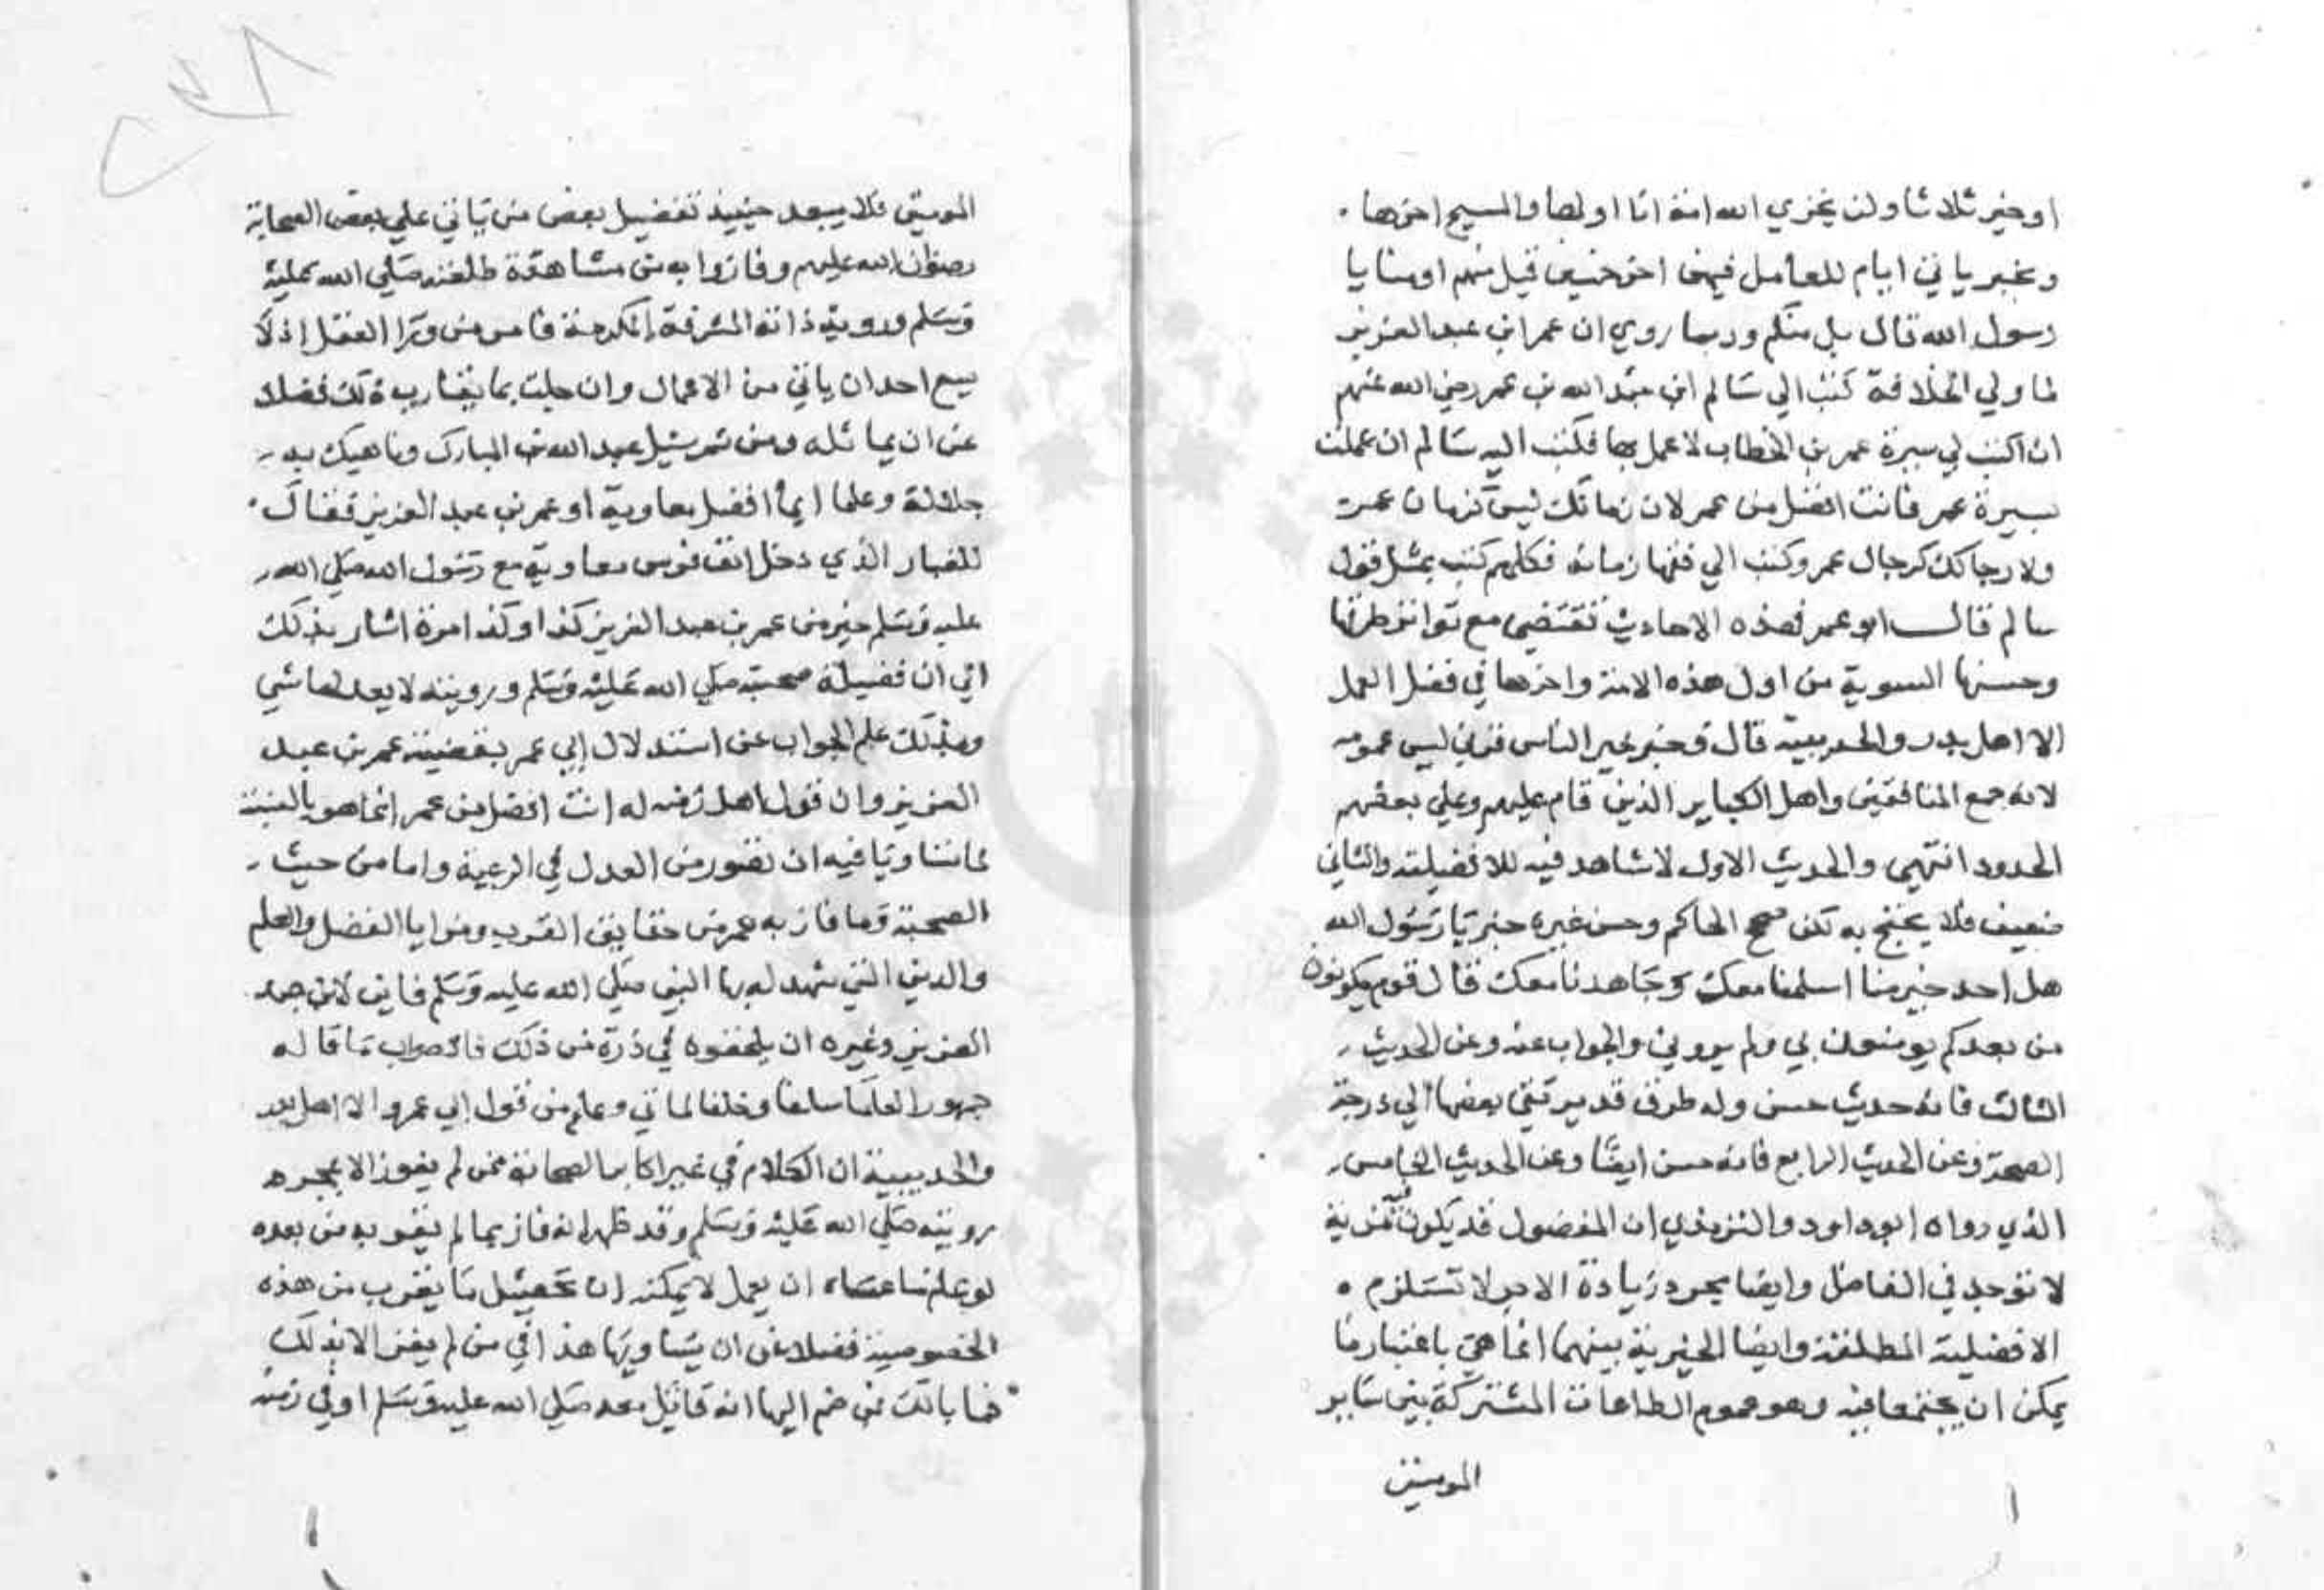 او خير ثلاثا ولن يخزي الله امة انا اولها والمسيح اخرها
وبخبر ياتي ايام للعامل فيهن اجر خمسين قيل منهم او منا يا
رسول الله قال بل منكم وربما روي ان عمر ابن عبد العزيز
لما ولي الخلافة كتب الي سالم ابن عبد الله بن عمر رضي الله عنهم
ان اكتب لي سيرة عمر بن الخطاب لاعمل بها فكتب اليه سالم ان عملت
بسيرة عمر فانت افضل من عمر لان زمانك ليس كزمان عمر
ولا رجالك كرجال عمر وكتب الي فقها زمانه فكلهم كتب بمثل قول
سالم قال ابو عمر فهذه الاحاديث تقتضي مع تواتر طرقها
وحسنها السوية من اول هذه الامة واخرها في فضل العمل
الا اهل بدر والحديبية قال وخبر خير الناس قرني ليس عمومه
لانه جمع المنافقين واهل الكباير الذين قام عليهم وعلي بعضهم
الحدود انتهي والحديث الاول لا شاهد فيه للافضيلته والثاني
ضعيف فلا يحتج به لكن صحح الحاكم وحسن غيره خبر يا رسول الله
هل احد خير منا اسلمنا معك وجاهدنا معك قال قوم يكونون
من بعدكم يومنون بي ولم يروني والجواب عنه وعن الحديث
الثالث فانه حديث حسن وله طرق قد يرتقي بعضها الي درجة
الصحة وعن الحديث الرابع فانه حسن ايضا وعن الحديث الخامس
الذي رواه ابو داود والترمذي ان المفضول قد يكون فيه مزية
لا توجد في الفاضل وايضا مجرد زيادة الاجر لا تستلزم
الافضلية المطلقة وايضا الخيرية بينهما انما هي باعتبار ما
يمكن ان يجتمعا فيه وهو عموم الطاعات المشتركة بين ساير
المومنين
المومنين فلا يبعد حينيذ تفضيل بعض من ياتي علي بعض الصحابة
رضوان الله عليهم وفازوا به من مشاهدة طلعته صلي الله عليه
وسلم وروية ذاته المشرفة المكرمة فامر من ورا العقل اذ لا
يسع احد ان ياتي من الاعمال وان جلت بما يقارب ذلك فضلا
عن ان يماثله ومن ثم سيل عبد الله بن المبارك وناهيك به
جلالة وعلما ايما افضل معاوية او عمر بن عبد العزيز فقال
للغبار الذي دخل انف فرس معاوية مع رسول الله صلي الله
عليه وسلم خير من عمر بن عبد العزيز كذا وكذا مرة اشار بذلك
الي ان فضيلة صحبته صلي الله عليه وسلم ورويته لا يعدلها شي
وبذلك علم الجواب عن استدلال ابي عمر بقضية عمر بن عبد
العزيز وان قول اهل زمنه له انت افضل من عمر انما هو بالنسبة
لما تساويا فيه ان تصور من العدل في الرعية واما من حيث
الصحبة وما فاز به عمر من حقايق القرب ومزايا الفضل والعلم
والدين التي شهد له بها النبي صلي الله عليه وسلم فاني لابن عبد
العزيز وغيره ان يلحقوه في ذرة من ذلك فالصواب ما قاله
جمهور العلما سلفا وخلفا لما تي وعلم من قول ابي عمر والا اهل بدر
والحديبية ان الكلام في غير اكابر الصحابة ممن لم يفوز الا بمجرد
رويته صلي الله عليه وسلم وقد ظهر انه فاز بما لم يفوز به من بعده
لو عمل ما عساه ان يعمل لا يمكنه ان تحصيل ما يقرب من هذه
الخصوصية فضلا عن ان يساويها هذا في من لم يفز الا بذلك
فما بالك بمن ضم اليها انه قاتل معه صلي الله عليه وسلم او في زمنه